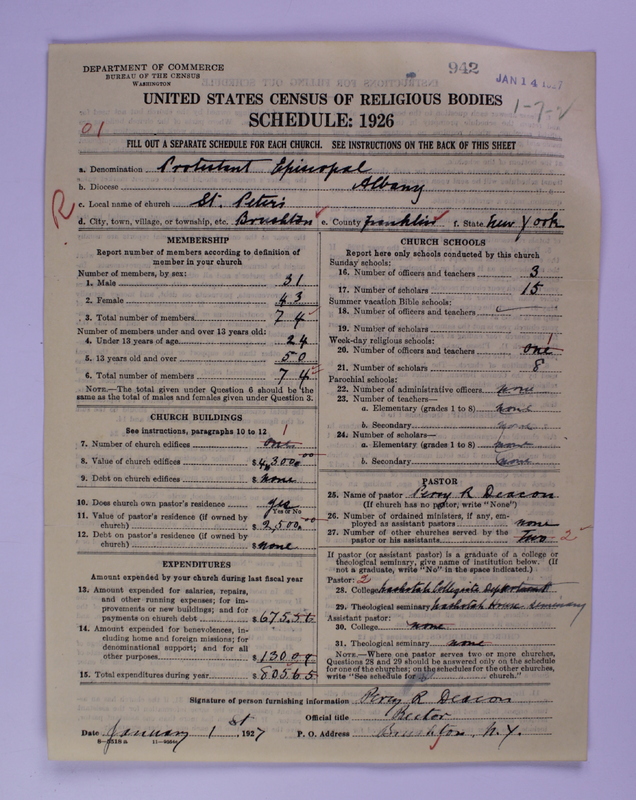 942
JAN 14 1927
DEPARTMENT OF COMMERCE
BUREAU OF THE CENSUS
WASHINGTON
1-7-2
UNITED STATES CENSUS OF RELIGIOUS BODIES
SCHEDULE: 1926
01
FILL OUT A SEPARATE SCHEDULE FOR EACH CHURCH. SEE INSTRUCTIONS ON THE BACK OF THIS SHEET
a. Denomination Protestant Episcopal
b. Diocese Albany
R
c. Local name of church St. Peter's
d. City, town, village, or township, etc. Brushton e. County Franklin f. State New York
MEMBERSHIP
Report number of members according to definition of
member in your church
Number of members, by sex:
1. Male 31
2. Female 43
3. Total number of members 74
Number of members under and over 13 years old:
4. Under 13 years of age 24
5. 13 years old and over 50
6. Total number of members 74
NOTE.—The total given under Question 6 should be the
same as the total of males and females given under Question 3.
CHURCH BUILDINGS
See instructions, paragraphs 10 to 12
7. Number of church edifices one 1
8. Value of church edifices $4,300.00
9. Debt on church edifices $none
10. Does church own pastor's residence yes
Yes or No
11. Value of pastor's residence (if owned by
church) $2,500.00
12. Debt on pastor's residence (if owned by
church) $none
EXPENDITURES
Amount expended by your church during last fiscal year
13. Amount expended for salaries, repairs,
and other running expenses; for im-
provements or new buildings; and for
payments on church debt $675.56
14. Amount expended for benevolences, in-
cluding home and foreign missions; for
denominational support; and for all
other purposes $130.09
15. Total expenditures during year $805.65
CHURCH SCHOOLS
Report here only schools conducted by this church
Sunday schools:
16. Number of officers and teachers 3
17. Number of scholars 15
Summer vacation Bible schools:
18. Number of officers and teachers
19. Number of scholars
Week-day religious schools:
20. Number of officers and teachers one 1
21. Number of scholars 8
Parochial schools:
22. Number of administrative officers none
23. Number of teachers—
a. Elementary (grades 1 to 8) none
b. Secondary none
24. Number of scholars—
a. Elementary (grades 1 to 8) none
b. Secondary none
PASTOR
25. Name of pastor Percy R Deacon
(If church has no pastor, write "None")
26. Number of ordained ministers, if any, em-
ployed as assistant pastors none
27. Number of other churches served by the
pastor or his assistants Two 2
If pastor (or assistant pastor) is a graduate of a college or
theological seminary, give name of institution below. (If
not a graduate, write "No" in the space indicated.)
Pastor: 2
28. College Nashotah Collegiate Department
29. Theological seminary Nashotah House Seminary
Assistant pastor:
30. College none
31. Theological seminary none
NOTE.—Where one pastor serves two or more churches,
Questions 28 and 29 should be answered only on the schedule
for one of the churches; on the schedules for the other churches,
write "See schedule for church."
Signature of person furnishing information Percy R Deacon
Official title Rector
Date January 1st 1927 P. O. Address Brushton, N.Y.